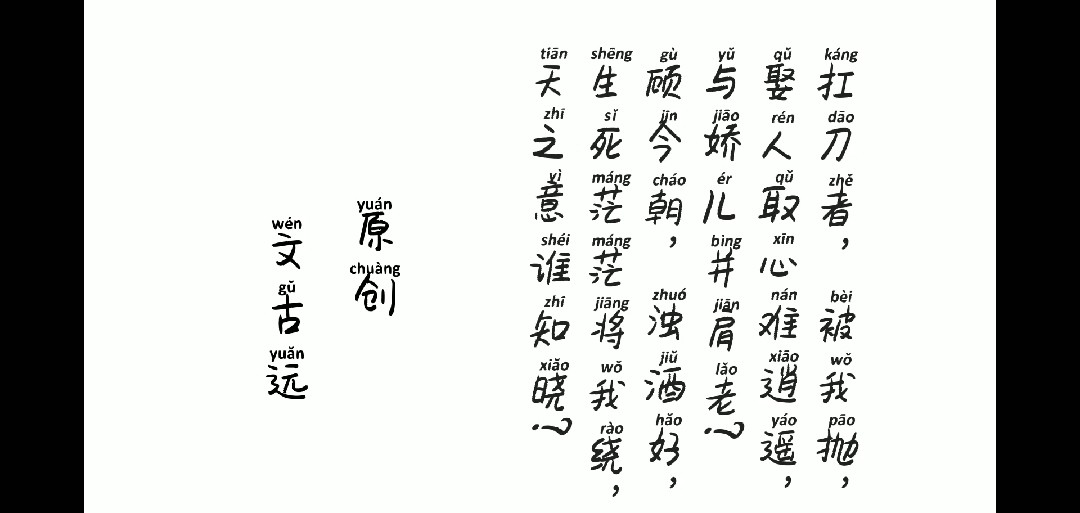 káng dāo zhě bèi wǒ pāo
扛刀者，被我抛，
qǔ rén qǔ xīn nán xiāo yáo
娶人取心难逍遥，
yǔ jiāo ér bìng jiān lǎo
与娇儿并肩老～
gù jīn cháo zhuó jiǔ hǎo
顾今朝，浊酒好，
shēng sǐ máng máng jiāng wǒ rào
生死茫茫将我绕，
tiān zhī yì shéi zhī xiǎo
天之意谁知晓～
yuán chuàng
原创
wén gǔ yuǎn
文古远